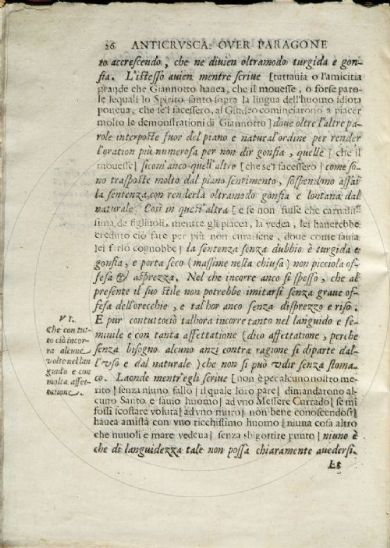 28 ANTICRVSCA. OVER PARAGONE
to accrescendo, che ne divien oltramodo turgida e gon-
fia. L'istesso avien mentre scrive [tuttavia o l'amicitia
grande che Giannotto havea, che il mouesse, o forse paro-
le lequali lo Spirito santo sopra la lingua dell'huomo idiota
poneua, che se'l facessero, al Giudeo cominciarono a piacer
molto le demonstrationi di Giannotto] dove oltre l'altre pa-
role interposte fuor del piano e natural ordine per render
l'oration più numerosa per non dir gonfia, quelle [che il
mouesse] sicom'anco quell'altre [che se'l facessero] come so-
no trasposte molto dal piano sentimento, sospendono assai
la sentenza con renderla oltramodo gonfia e lontana dal
naturale. Così in quest'altra [e se non fusse che
di figlinoli, mentre gli piacei, la vedea, lei haverebbe
creduto ciò fare per più non
lei frio cognobbe] la sentenza senza dubbio è turgida e
gonfia, e porta seco (massime nella chiusa) non picciola of-
fesa & asprezza. Nel che incorre anco sì spesso, che al
presente il suo stile non potrebbe imitarsi senza graue of-
fesa dell'orecchie, e tal'hor anco senza disprezzo e riso.
E pur contuttociò talhora incorre tanto nel languido e fe-
minile e con tanta affettatione (dico affettatione, perche
senza bisogno alcuno anzi contra ragione si diparte dal-
l'vso e dal naturale) che non si può vdir senza stoma-
co. Laonde mentr'egli scrive [non è per alcuno nostro me-
rito] senza niuno fallo] il quale loro pare] dimandarono al-
cuno Santo e savio huomo] ad vno Messere Currado] se mi
fossi scostare voluta] ad vno muro] non bene conoscendosi]
havea amistà con vno ricchissimo huomo] niuna cosa altro
che nuuoli e mare vedeua] senza sbigottire punto] niuno è
che di languidezza tale non possa chiaramente auedersi.
Et
VI.
Che con tut-
to ciò incor-
ra alcune
volte nel lan
guido e con
molta affet-
tatione.